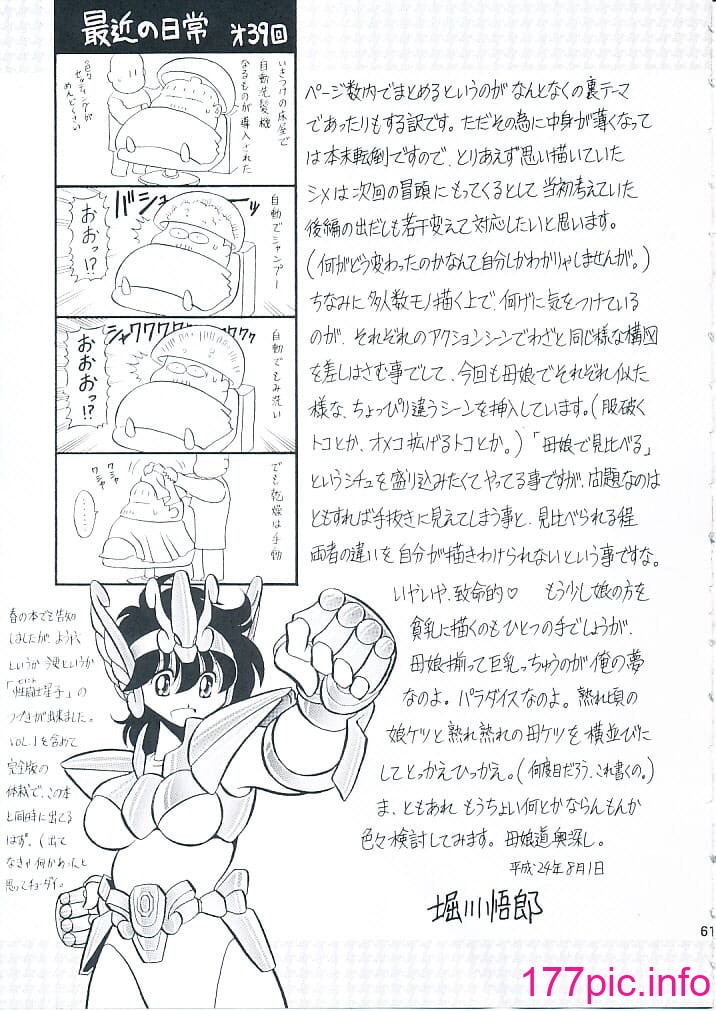 最近の日常 第39回
いきつけの床屋で
自動洗髪機
なるものが導入された
色々
セッティングが
めんどくさい
自動でシャンプー
バシューーッ
おおっ!?
自動でもみ洗い
シャクワクワクワクワク
おおおっ!?
でも乾燥は手動
クシャ
クシャ
……
ページ数内でまとめるというのがなんとなくの裏テーマ
であったりもする訳です。ただその為に中身が薄くなって
は本末転倒ですので、とりあえず思い描いていた
シメは次回の冒頭にもってくるとして当初考えていた
後編の出だしも若干変えて対応したいと思います。
(何がどう変わったのかなんて自分しかわかりゃしませんが。)
ちなみに多人数モノ描く上で、何げに気をつけている
のが、それぞれのアクションシーンでわざと同じ様な構図
を差しはさむ事でして、今回も母娘でそれぞれ似た
様な、ちょっぴり違うシーンを挿入しています。(服破く
トコとか、オメコ拡げるトコとか。)「母娘で見比べる」
というシチュを盛り込みたくてやってる事ですが、問題なのは
ともすれば手抜きに見えてしまう事と、見比べられる程
両者の違いを自分が描きわけられないという事ですな。
いやいや、致命的♡ もう少し娘の方を
貧乳に描くのもひとつの手でしょうが、
母娘揃って巨乳っちゅうのが俺の夢
なのよ。パラダイスなのよ。熟れ頃の
娘ケツと熟れ熟れの母ケツを横並びに
してとっかえひっかえ。(何度目だろう、これ書くの。)
ま、ともあれ もうちょい何とかならんもんか
色々検討してみます。母娘道奥深し。
平成24年8月1日
堀川悟郎
春の本でも告知
しましたが、ようやく
というか今更というか
「性闘士星子」の
つづきが出来ました。
VOL.1を含めて
完全版の
体裁で、この本
と同時に出てる
はず。(出て
なきゃ何かあったと
思ってチョーダイ。
61
177pic.info